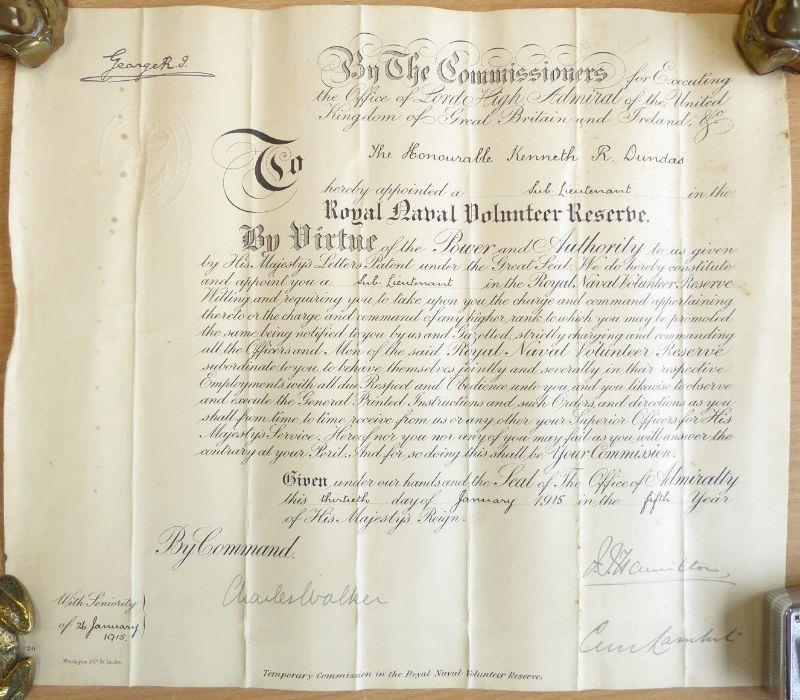 George R. I.
By The Commissioners for Executing
the Office of Lord High Admiral of the United
Kingdom of Great Britain and Ireland, &c
To The Honourable Kenneth R. Dundas
hereby appointed a Sub Lieutenant in the
Royal Naval Volunteer Reserve.
By Virtue of the Power and Authority to us given
by His Majesty's Letters Patent under the Great Seal, We do hereby constitute
and appoint you a Sub Lieutenant in the Royal Naval Volunteer Reserve
Willing and requiring you to take upon you the charge and command appertaining
thereto or the charge and command of any higher rank to which you may be promoted
the same being notified to you by us and Gazetted, strictly charging and commanding
all the Officers and Men of the said Royal Naval Volunteer Reserve
subordinate to you, to behave themselves jointly and severally in their respective
Employments with all due Respect and Obedience unto you, and you likewise to observe
and execute the General Printed Instructions and such Orders, and directions as you
shall from time to time receive from us or any other your Superior Officers for His
Majesty's Service. Hereof nor you nor any of you may fail as you will answer the
contrary at your Peril. And for so doing this shall be Your Commission.
Given under our hands and the Seal of The Office of Admiralty
this thirtieth day of January 1915 in the fifth Year
of His Majesty's Reign.
By Command.
F. T. Hamilton
Charles Walker
With Seniority
of 26 January
1915.
20
Waterlow &
Temporary Commission in the Royal Naval Volunteer Reserve.